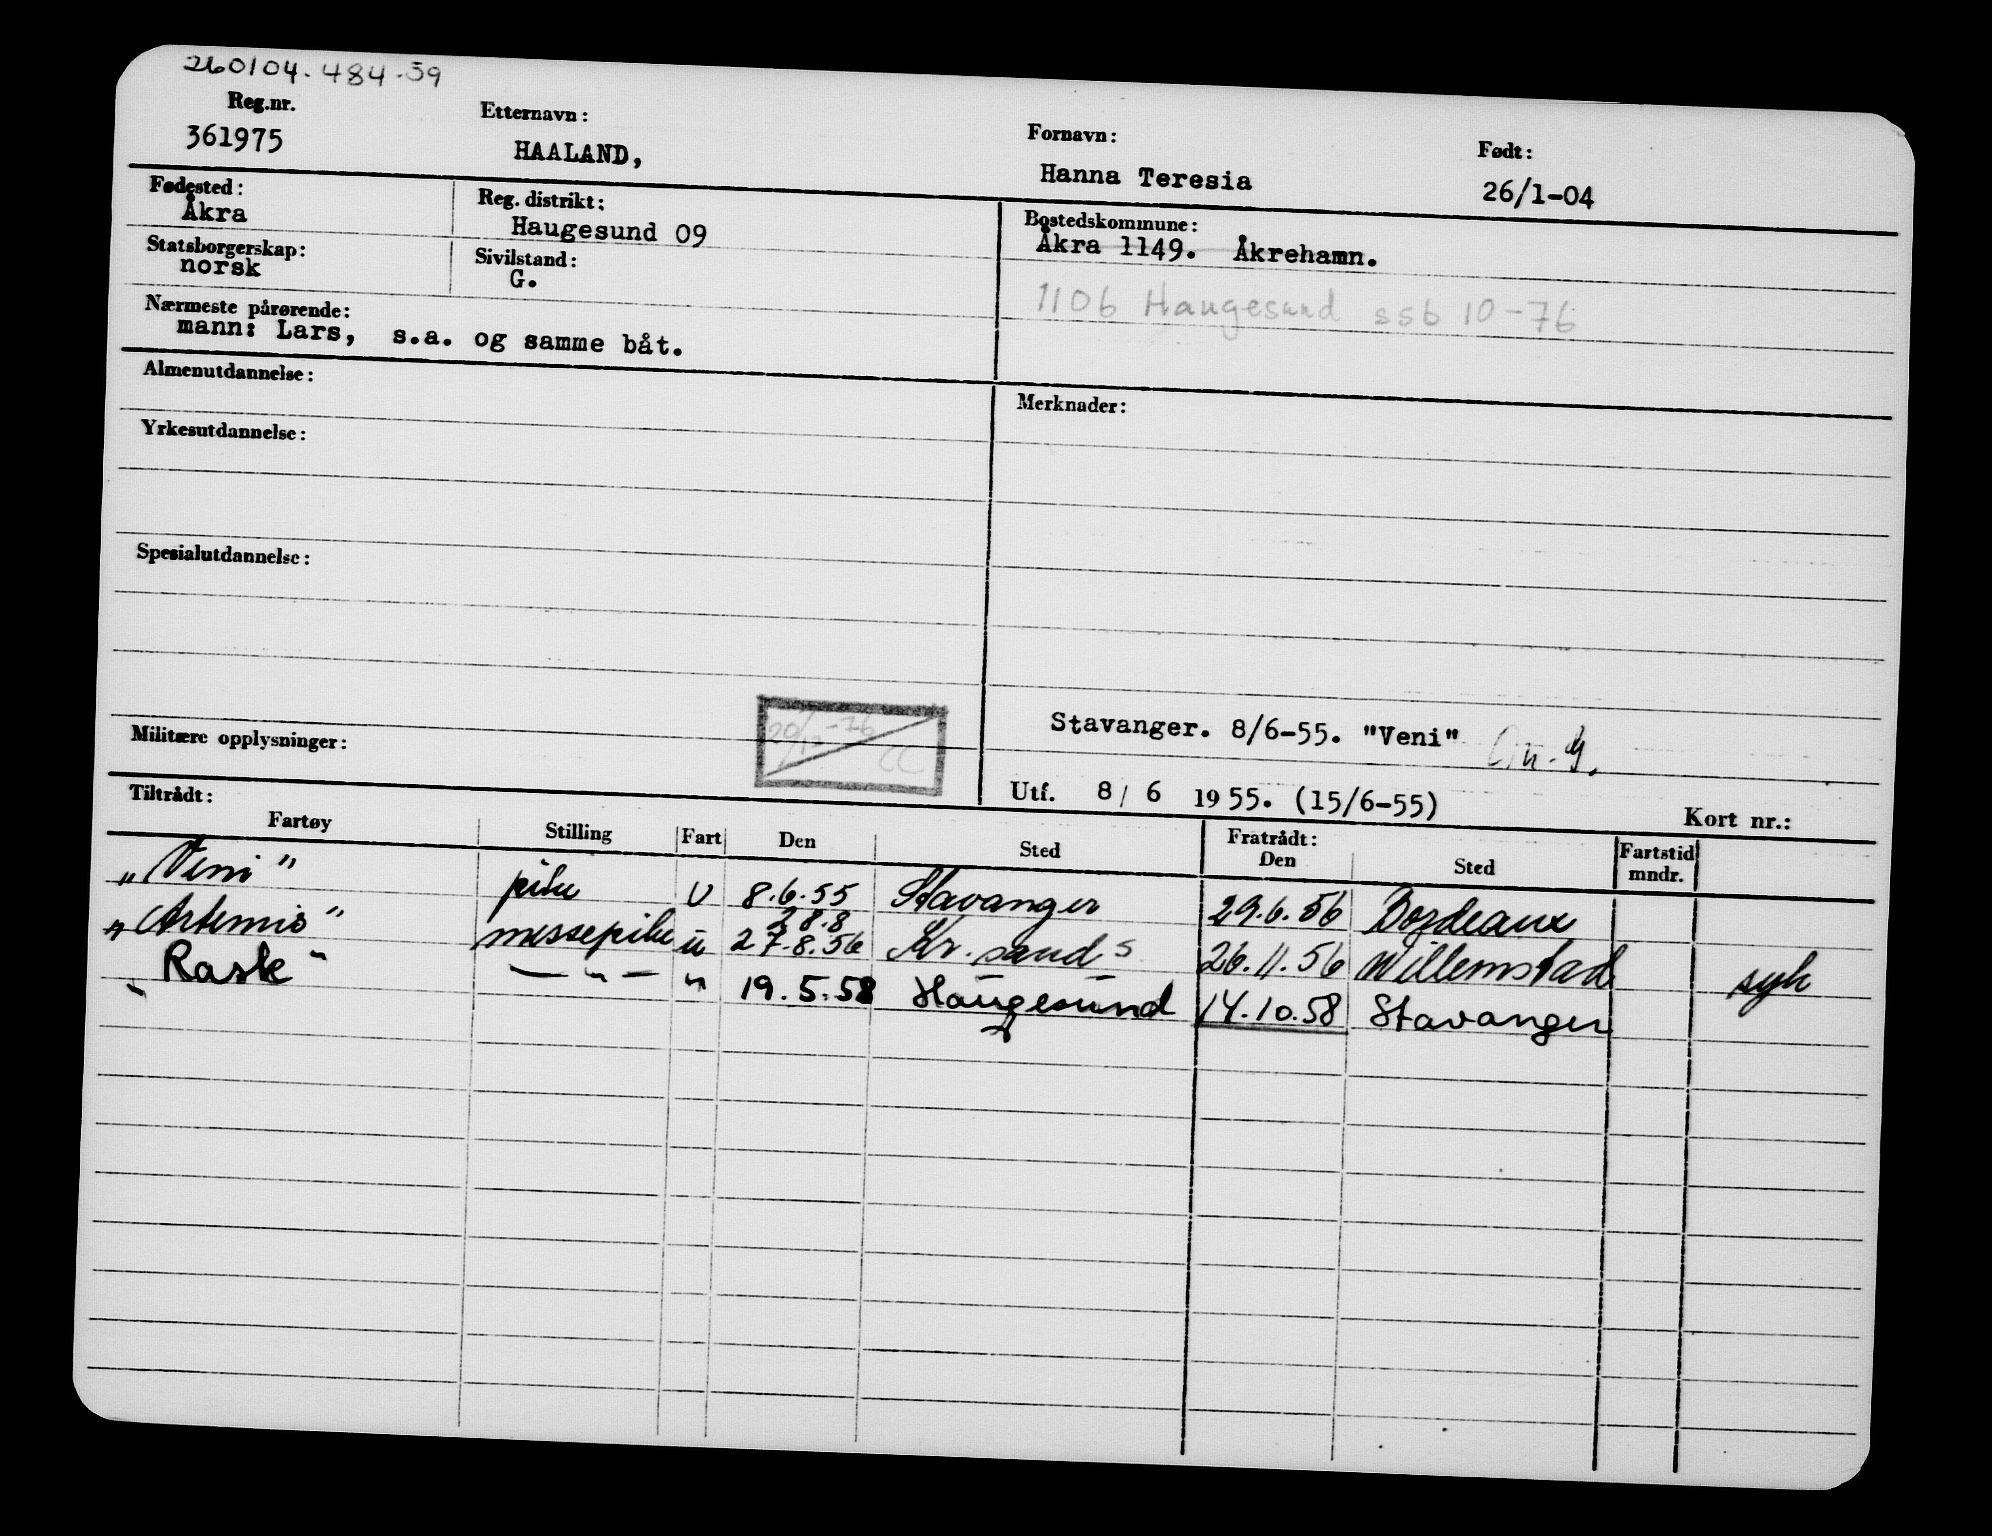 260104.484.59
Reg.nr. Etternavn: Fornavn: Født:
361975 HAALAND, Hanna Teresia 26/1-04
Fødested: Reg. distrikt: Bostedskommune:
Åkra Haugesund 09 Åkra 1149. Åkrehamn.
Statsborgerskap: Sivilstand:
norsk G.
1106 Haugesund ssb 10-76
Nærmeste pårørende:
mann: Lars, s.a. og samme båt.
Almenutdannelse: Merknader:
Yrkesutdannelse:
Spesialutdannelse:
20/12-76 CC
Stavanger. 8/6-55. "Veni"
Militære opplysninger:
Utf. 8/6 1955. (15/6-55) Kort nr.:
Tiltrådt: Fratrådt:
Fartøy Stilling Fart Den Sted Den Sted Fartstid mndr.
"Veni" pike U 8.6.55 Stavanger 29.6.56 Bordeaux
28.8
"Artemis" messepike u 27.8.56 Kr. sand s 26.11.56 Willemstad syk
"Rask" — " — " 19.5.58 Haugesund 14.10.58 Stavanger